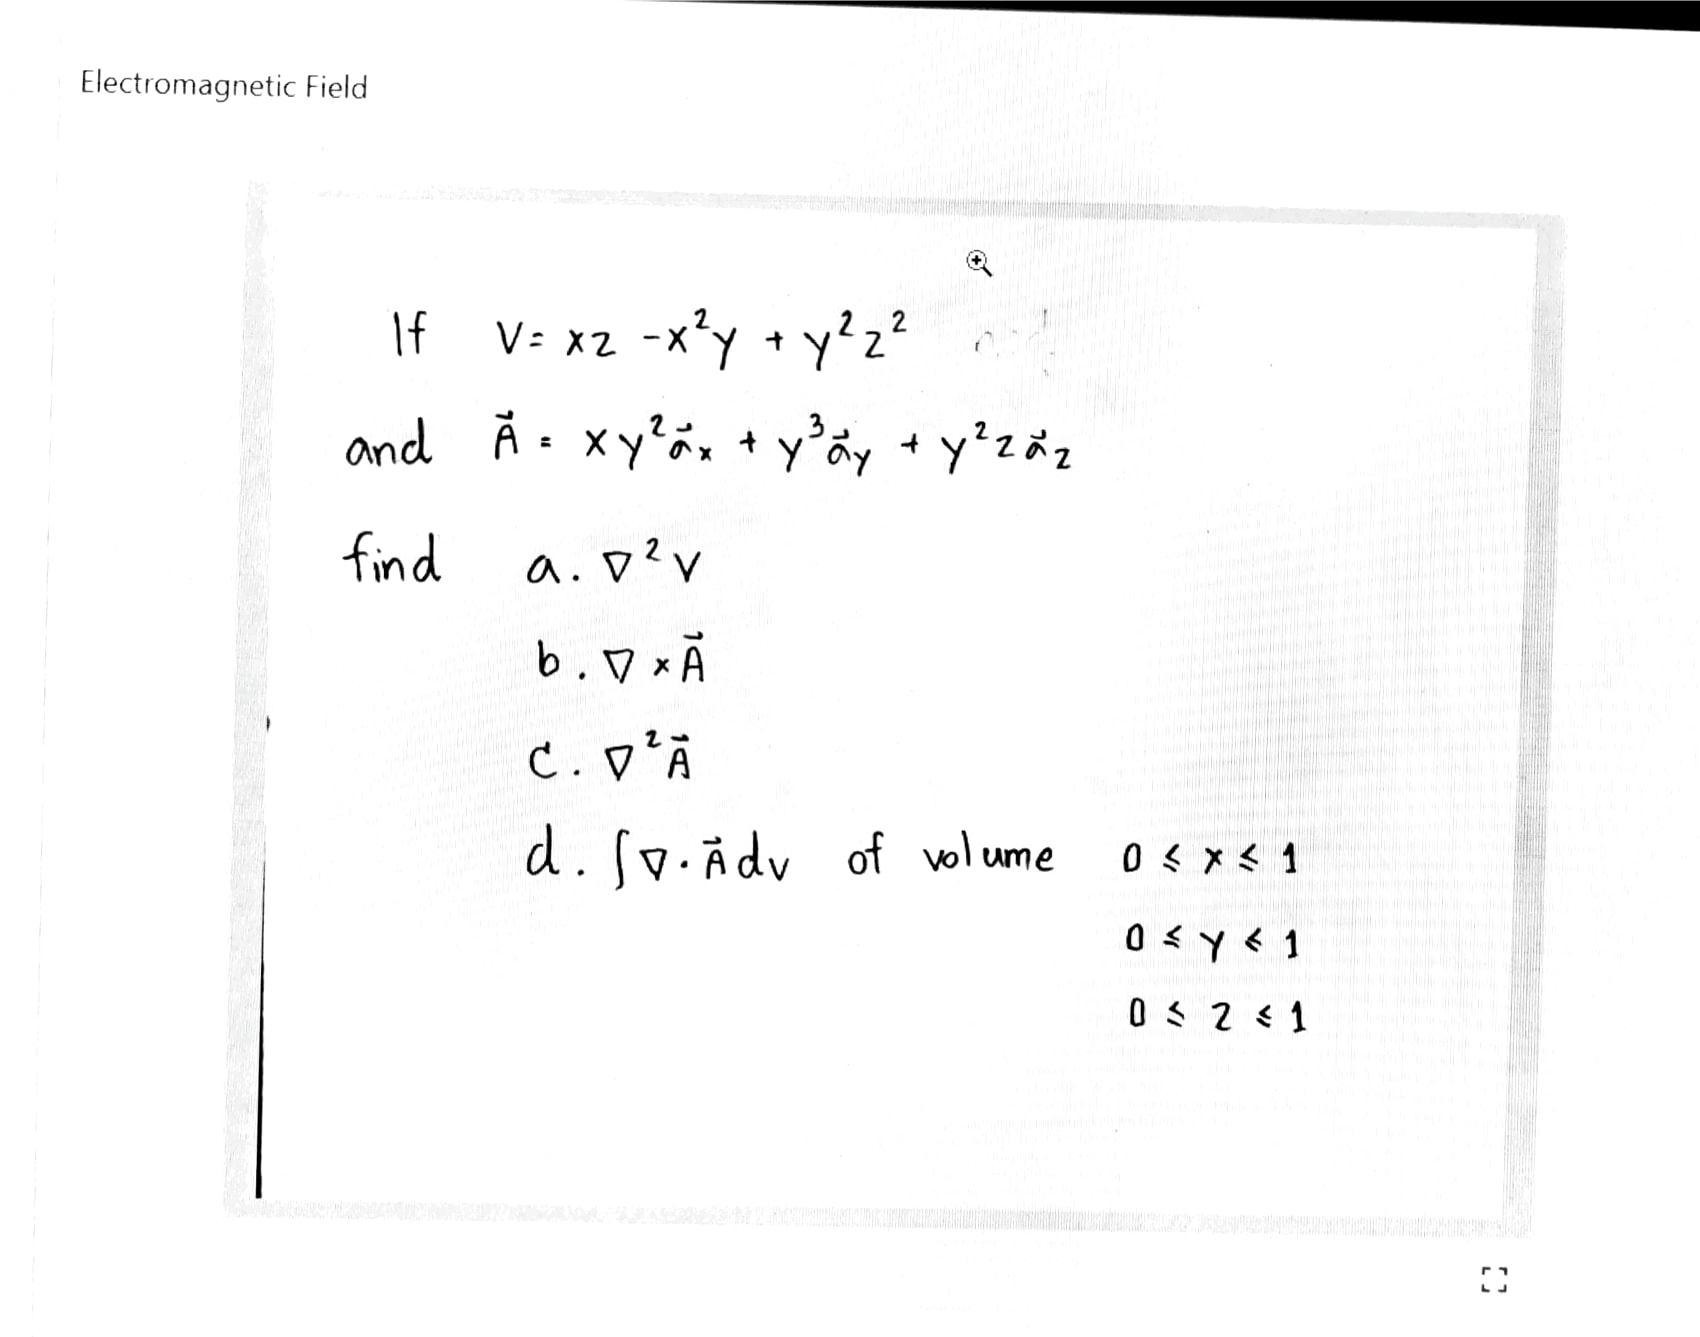 Electromagnetic Field
If V = xz - x²y + y²z²
and A⃗ = xy²a⃗x + y³a⃗y + y²za⃗z
find a. ∇²V
b. ∇ × A⃗
c. ∇²A⃗
d. ∫∇·A⃗dv of volume 0 ≤ x ≤ 1
0 ≤ y ≤ 1
0 ≤ z ≤ 1